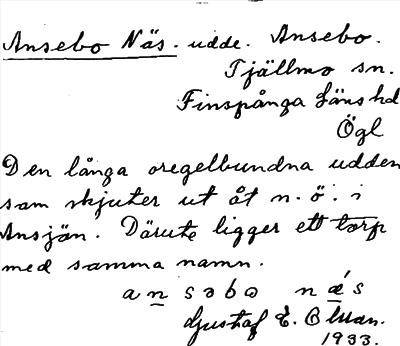 Ansebo Näs. udde. Ansebo.
Tjällmo sn.
Finspånga läns hd
Ögl
Den långa oregelbundna udden
som skjuter ut åt n.ö. i
Ansjön. Därute ligger ett torp
med samma namn.
ansəbo næ´s
Gustaf E. Olsson.
1933.